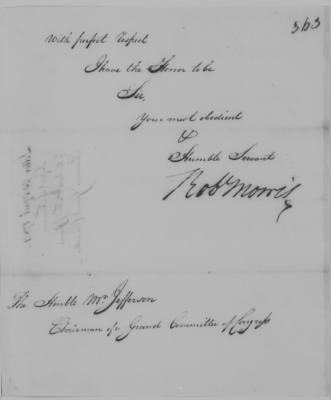 363
With perfect respect
I have the Honor to be
Sir,
Your most obedient
&
Humble Servant
Robt Morris
The Honble Mr Jefferson
Chairman of a Grand Committee of Congress